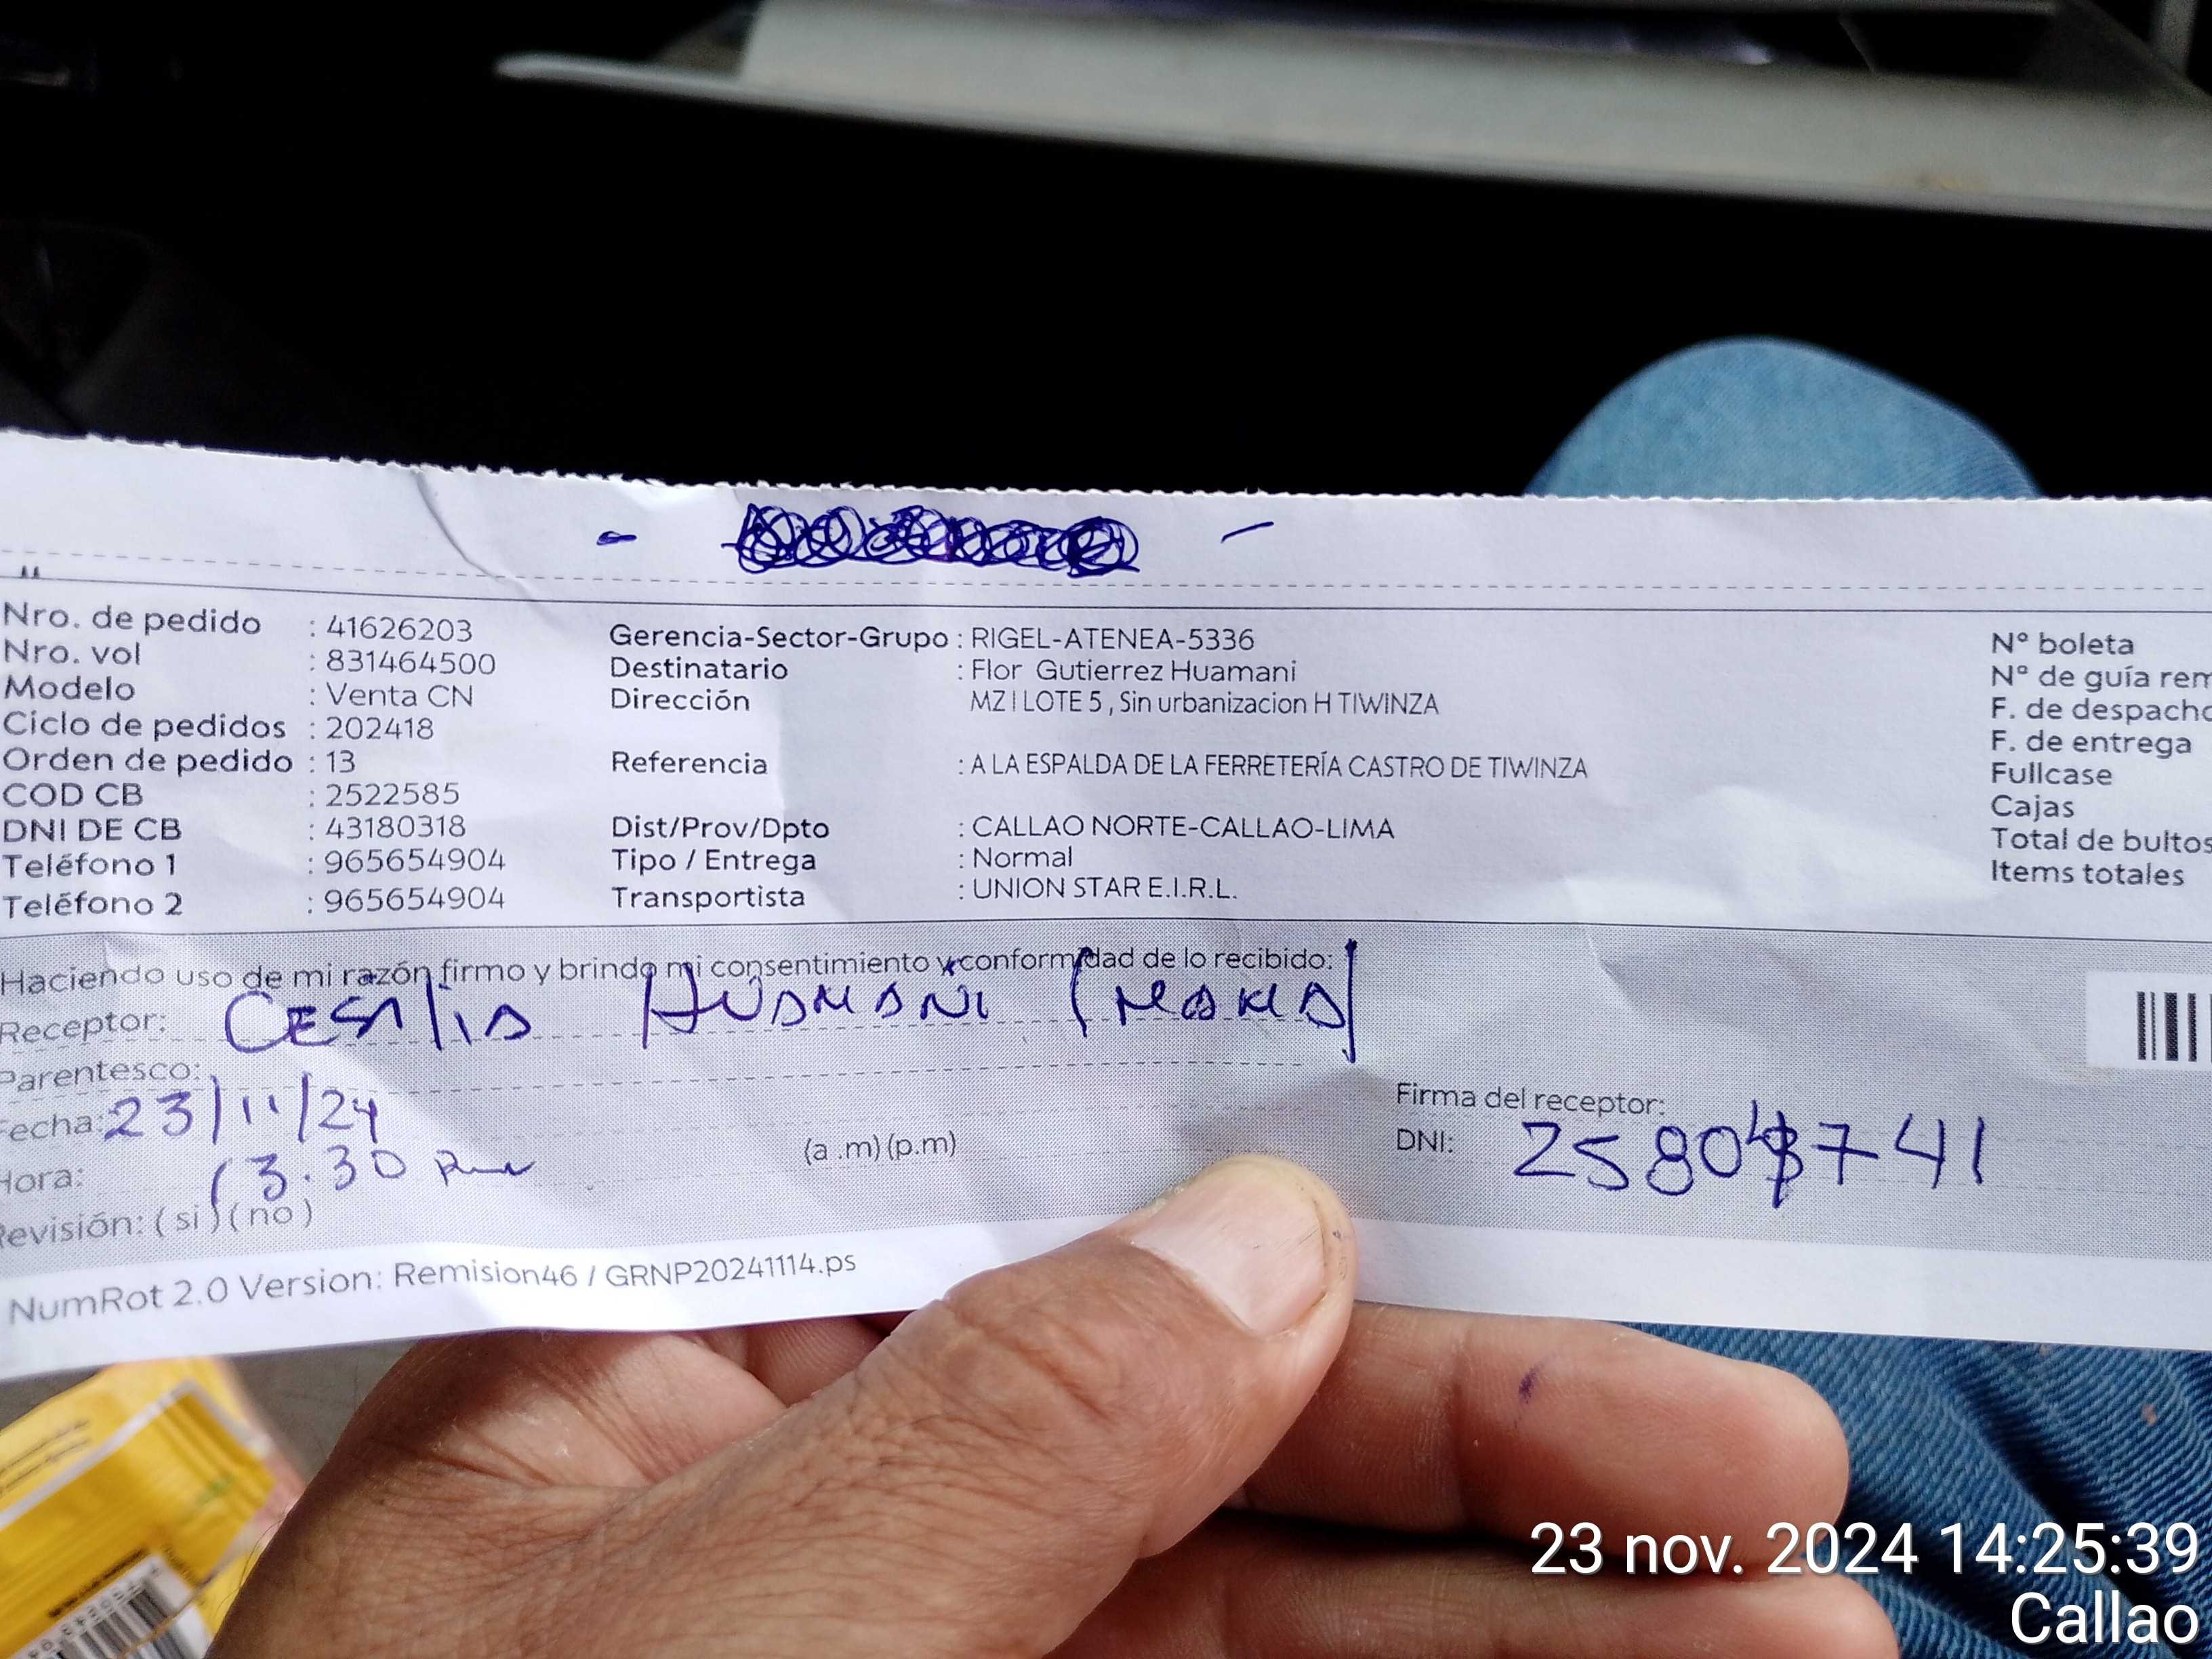 Nro. de pedido : 41626203
Nro. vol : 831464500
Modelo : Venta CN
Ciclo de pedidos : 202418
Orden de pedido : 13
COD CB : 2522585
DNI DE CB : 43180318
Teléfono 1 : 965654904
Teléfono 2 : 965654904
Gerencia-Sector-Grupo : RIGEL-ATENEA-5336
Destinatario : Flor Gutierrez Huamani
Dirección MZ I LOTE 5 , Sin urbanizacion H TIWINZA
Referencia : A LA ESPALDA DE LA FERRETERÍA CASTRO DE TIWINZA
Dist/Prov/Dpto : CALLAO NORTE-CALLAO-LIMA
Tipo / Entrega : Normal
Transportista : UNION STAR E.I.R.L.
N° boleta
N° de guía rem
F. de despacho
F. de entrega
Fullcase
Cajas
Total de bultos
Items totales
Haciendo uso de mi razón firmo y brindo mi consentimiento y conformidad de lo recibido:
Receptor: HUAMANI (MAMA)
Parentesco:
Fecha: 23/11/24
Hora: 3:30 pm (a .m) (p.m)
Revisión: ( si ) ( no )
Firma del receptor:
DNI:
NumRot 2.0 Version: Remision46 / GRNP20241114.ps
23 nov. 2024 14:25:39
Callao